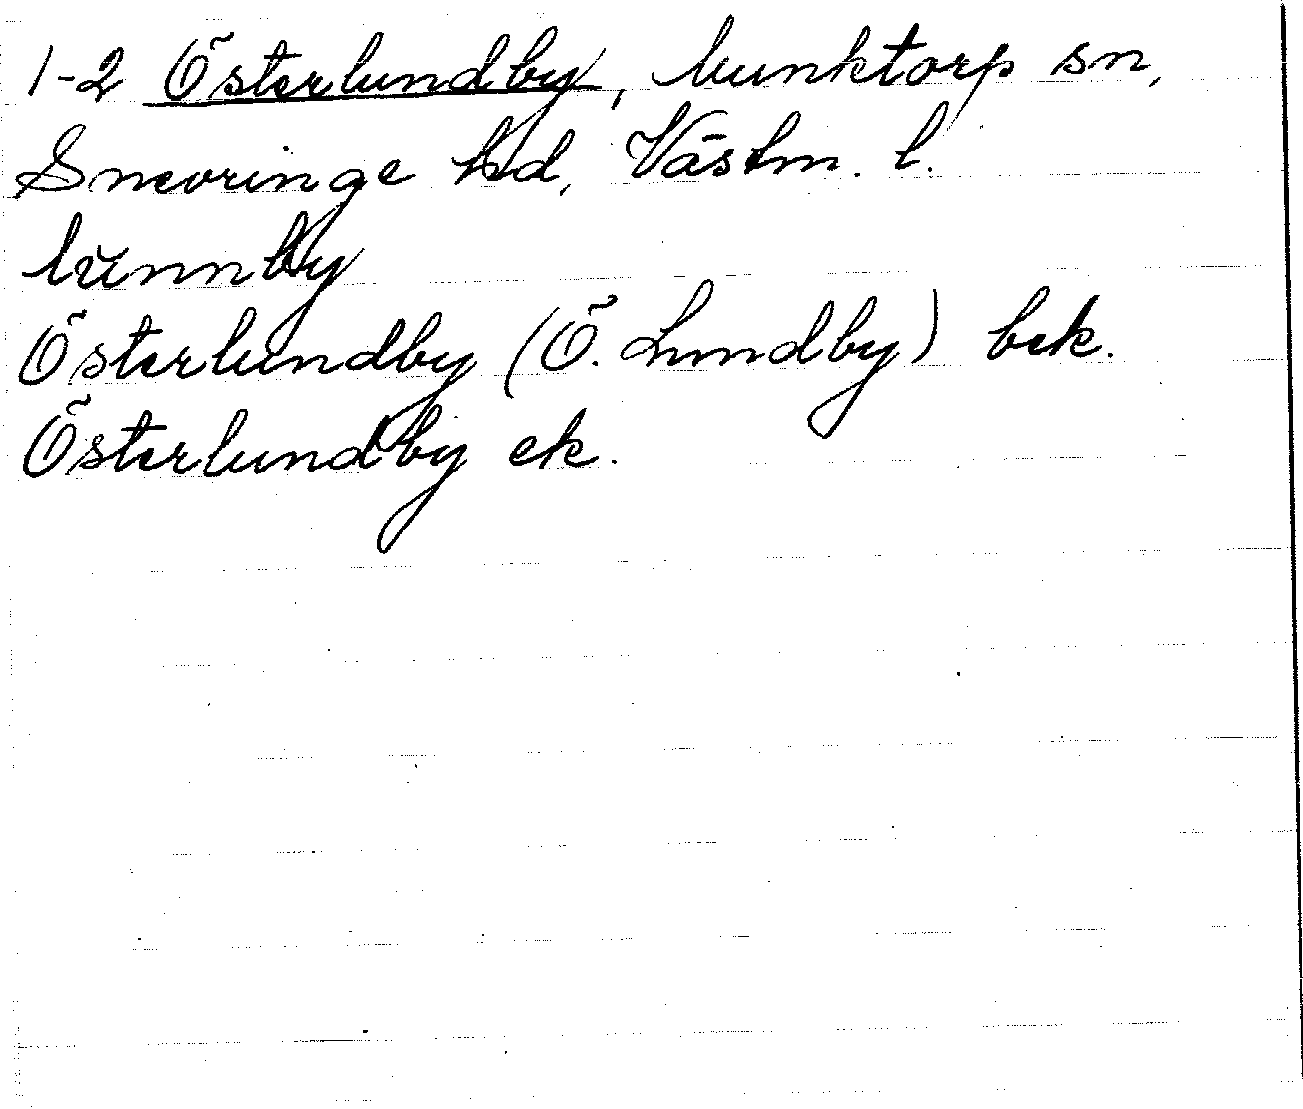 1-2 Österlundby, Munktorp sn,
Snevringe hd, Västm. l.
lŭnnby
Österlundby (Ö. Lundby) bek.
Österlundby ek.